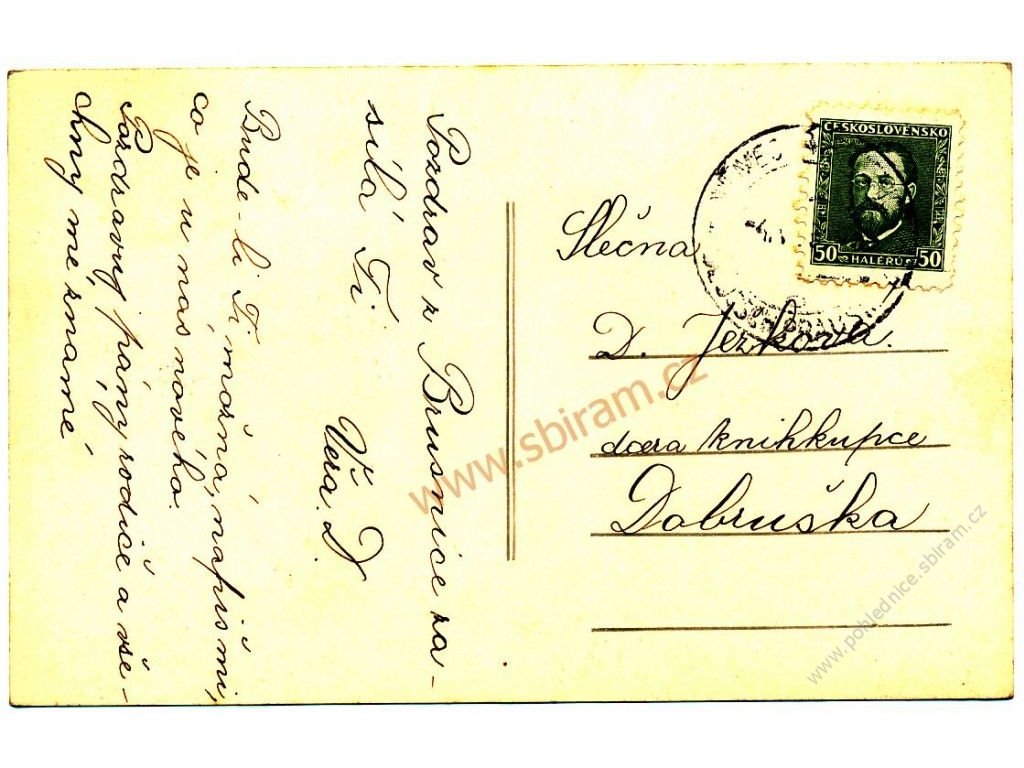 Pozdrav z Brusnice za-
sílá Ti
Věra. D.
Bude-li Ti možná, napiš mi,
co je u nás nového.
Pozdravuj pány rodiče a vše-
chny mne známé
ČESKOSLOVENSKO
50 HALÉŘŮ 50
Slečna
D. Ježkova.
dcera knihkupce
Dobruška
www.sbiram.cz
www.pohlednice.sbiram.cz